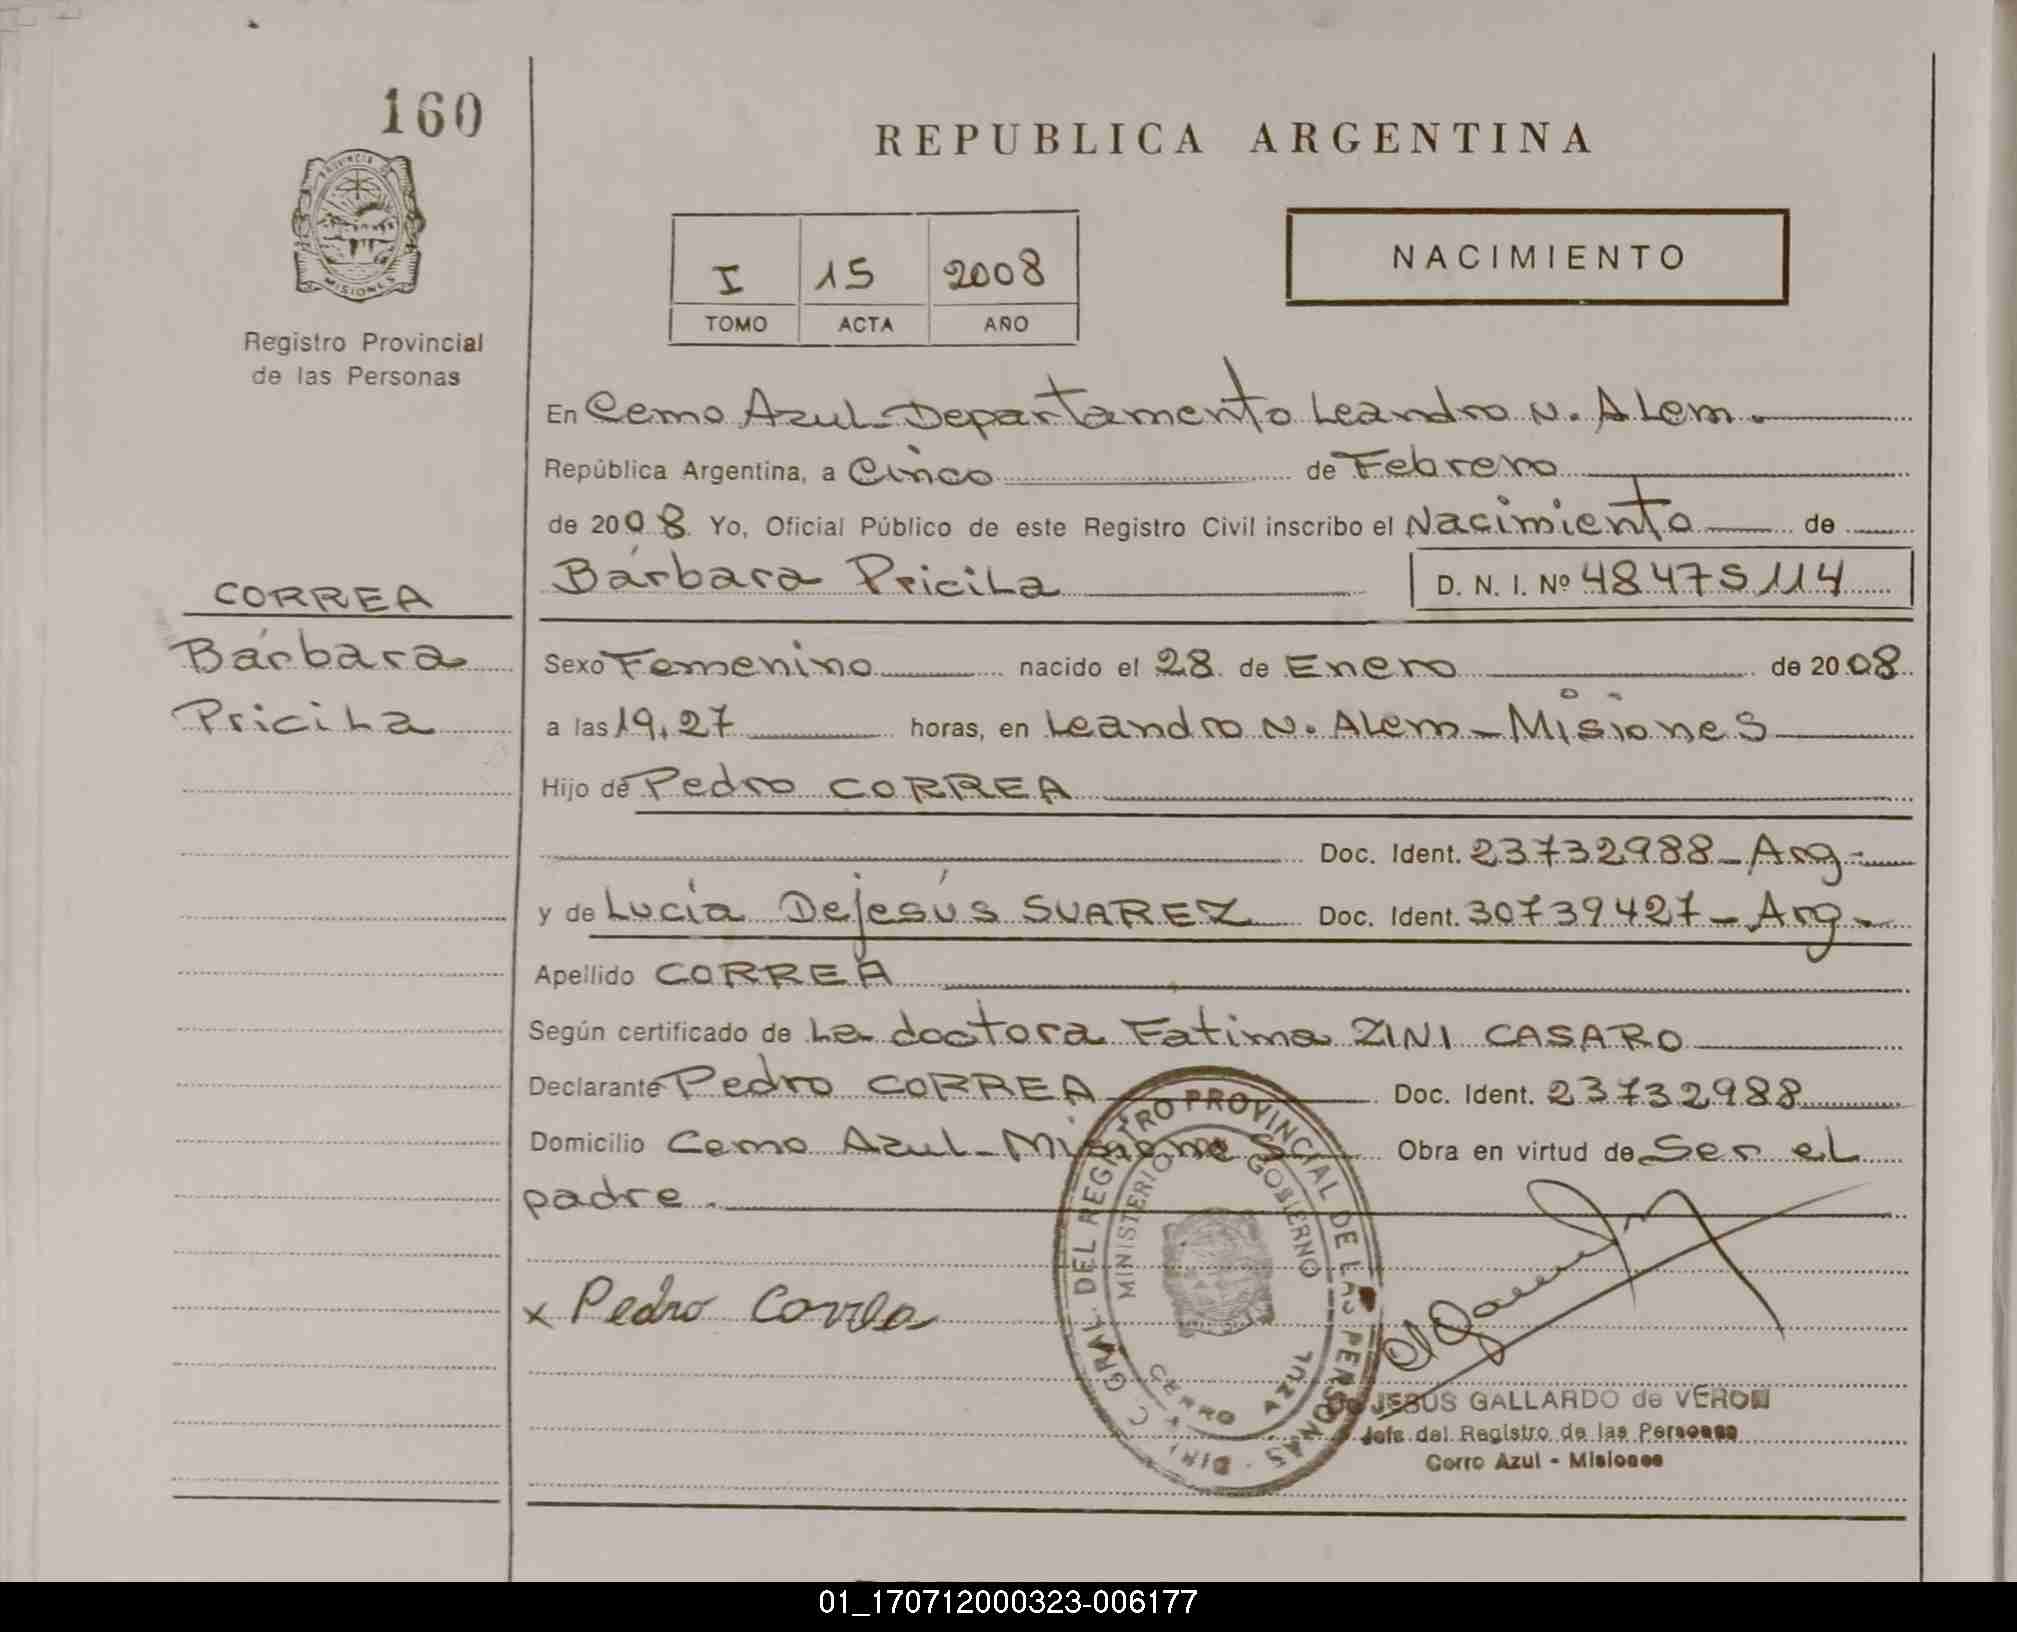 160
PROVINCIA DE
MISIONES
Registro Provincial
de las Personas
REPUBLICA ARGENTINA
I 15 2008
TOMO ACTA AÑO
NACIMIENTO
En Cerro Azul - Departamento Leandro N. Alem.
República Argentina, a Cinco de Febrero
de 2008. Yo, Oficial Público de este Registro Civil inscribo el Nacimiento de
Bárbara Pricila D. N. I. Nº 48475114
CORREA
Bárbara
Pricila
Sexo Femenino nacido el 28 de Enero de 2008
a las 19,27 horas, en Leandro N. Alem - Misiones
Hijo de Pedro CORREA
Doc. Ident. 23732988 - Arg -
y de Lucía Dejesús SUAREZ Doc. Ident. 30739427 - Arg -
Apellido CORREA
Según certificado de La doctora Fatima ZINI CASARO
Declarante Pedro CORREA Doc. Ident. 23732988
Domicilio Cerro Azul - Misiones Obra en virtud de Ser el
padre.
x Pedro Correa
DIR. GRAL. DEL REGISTRO PROVINCIAL DE LAS PERSONAS
MINISTERIO GOBIERNO
CERRO AZUL
JESUS GALLARDO de VERON
Jefe del Registro de las Personas
Cerro Azul - Misiones
01_170712000323-006177